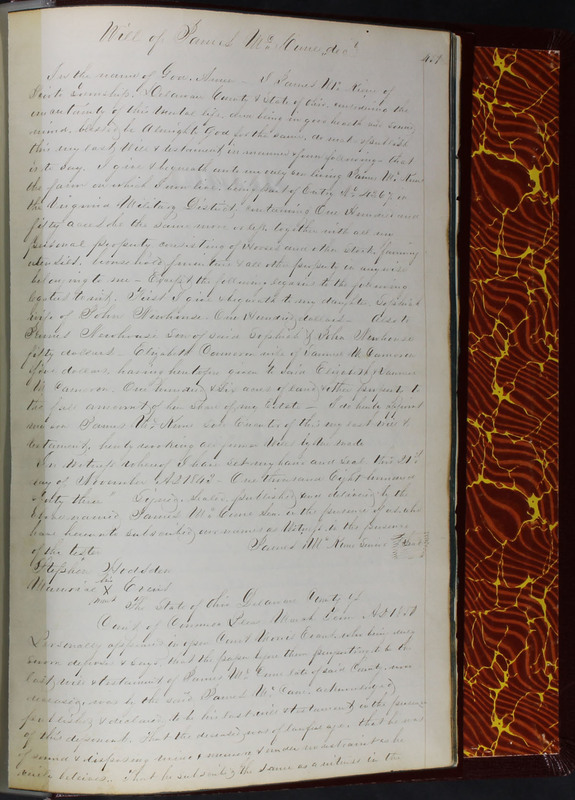 Will of James Mc Kune Decd
457
In the name of God Amen - I James Mc Kune of
Scioto Township, Delaware County & State of Ohio, considering the
uncertainty of this mortal life, and being in good health and sound
mind, blessed be Almighty God for the same, do make & publish
this my last Will & testament in manner & form following that
is to say. I give & bequeath unto my only son living James Mc Kune
the farm on which I now live being part of Entry No in
the Virginia Military District containing One Hundred and
fifty acres be the same more or less together with all my
personal property consisting of Horses and other stock, farming
utensils, household furniture & all other property in anywise
belonging to me - Except the following legacies to the following
Legatees to wit, First I give & bequeath to my daughter Sophiah
wife of John Newhouse - One Hundred dollars - Also to
Newhouse Son of said Sophiah & John Newhouse
fifty dollars - Elizabeth Cameron wife of Samuel M Cameron
five dollars, having heretofore given to said Elizabeth & Samuel
M Cameron One hundred & Six acres of land & other property to
the full amount of her Share of my Estate - I do hereby appoint
my son James Mc Kune Sole Executor of this my last will &
testament, hereby revoking all former Wills by me made
In Witness whereof I have set my hand and Seal this 21st
day of November AD 1843 One thousand Eight hundred
& fifty three" Signed, Sealed, published and declared by the
above named James Mc Kune Sen in the presence of us who
have hereunto subscribed our names as Witness in the presence
of the testator
James Mc Kune Senior Seal
Stephen Hodsden
his
X Evans
mark
The State of Ohio Delaware County ss
Court of Common Pleas March Term AD 1851
Personally appeared in open Court Evans, who being duly
sworn deposes & says, that the paper before them purporting to be the
last will & testament of James Mc Kune late of said County, now
deceased, was by the said James Mc Kune acknowledged,
published & declared to be his last will & testament, in the presence
of this deponent. That the deceased was of lawful age that he was
of sound & disposing mind & memory & under no restraint as he
verily believes. That he subscribed the same as a witness in the